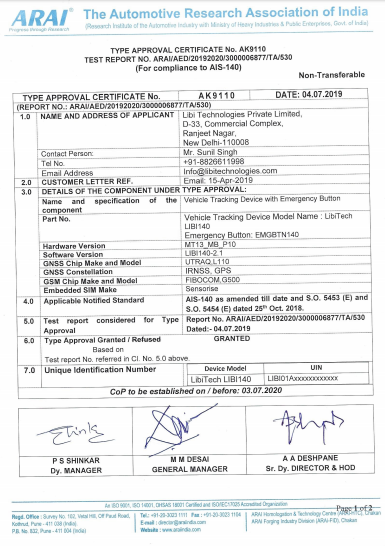 ARAI
Progress through Research
The Automotive Research Association of India
(Research Institute of the Automotive Industry with Ministry of Heavy Industries & Public Enterprises, Govt. of India)
TYPE APPROVAL CERTIFICATE No. AK9110
TEST REPORT NO. ARAI/AED/20192020/3000006877/TA/530
(For compliance to AIS-140)
Non-Transferable
TYPE APPROVAL CERTIFICATE No. AK9110 DATE: 04.07.2019
(REPORT NO.: ARAI/AED/20192020/3000006877/TA/530)
1.0 NAME AND ADDRESS OF APPLICANT Libi Technologies Private Limited,
D-33, Commercial Complex,
Ranjeet Nagar,
New Delhi-110008
Contact Person: Mr. Sunil Singh
Tel No. +91-8826611998
Email Address Info@libitechnologies.com
2.0 CUSTOMER LETTER REF. Email: 15-Apr-2019
3.0 DETAILS OF THE COMPONENT UNDER TYPE APPROVAL:
Name and specification of the component Vehicle Tracking Device with Emergency Button
Part No. Vehicle Tracking Device Model Name : LibiTech
LIBI140
Emergency Button: EMGBTN140
Hardware Version MT13_MB_P10
Software Version LIBI140-2.1
GNSS Chip Make and Model UTRAQ,L110
GNSS Constellation IRNSS, GPS
GSM Chip Make and Model FIBOCOM,G500
Embedded SIM Make Sensorise
4.0 Applicable Notified Standard AIS-140 as amended till date and S.O. 5453 (E) and
S.O. 5454 (E) dated 25th Oct. 2018.
5.0 Test report considered for Type Approval Report No. ARAI/AED/20192020/3000006877/TA/530
Dated:- 04.07.2019
6.0 Type Approval Granted / Refused GRANTED
Based on
Test report No. referred in Cl. No. 5.0 above.
7.0 Unique Identification Number Device Model UIN
LibiTech LIBI140 LIBI01Axxxxxxxxxxxx
CoP to be established on / before: 03.07.2020
P S SHINKAR
Dy. MANAGER
M M DESAI
GENERAL MANAGER
A A DESHPANE
Sr. Dy. DIRECTOR & HOD
Page 1 of 2
An ISO 9001, ISO 14001, OHSAS 18001 Certified and ISO/IEC17025 Accredited Organization
Regd. Office : Survey No. 102, Vetal Hill, Off Paud Road,
Kothrud, Pune - 411 038 (India)
P.B. No. 832, Pune - 411 004 (India)
Tel.: +91-20-3023 1111 Fax : +91-20-3023 1104
E-mail : director@araiindia.com
Website : www.araiindia.com
ARAI Homologation & Technology Centre (ARAI-HTC), Chakan
ARAI Forging Industry Division (ARAI-FID), Chakan